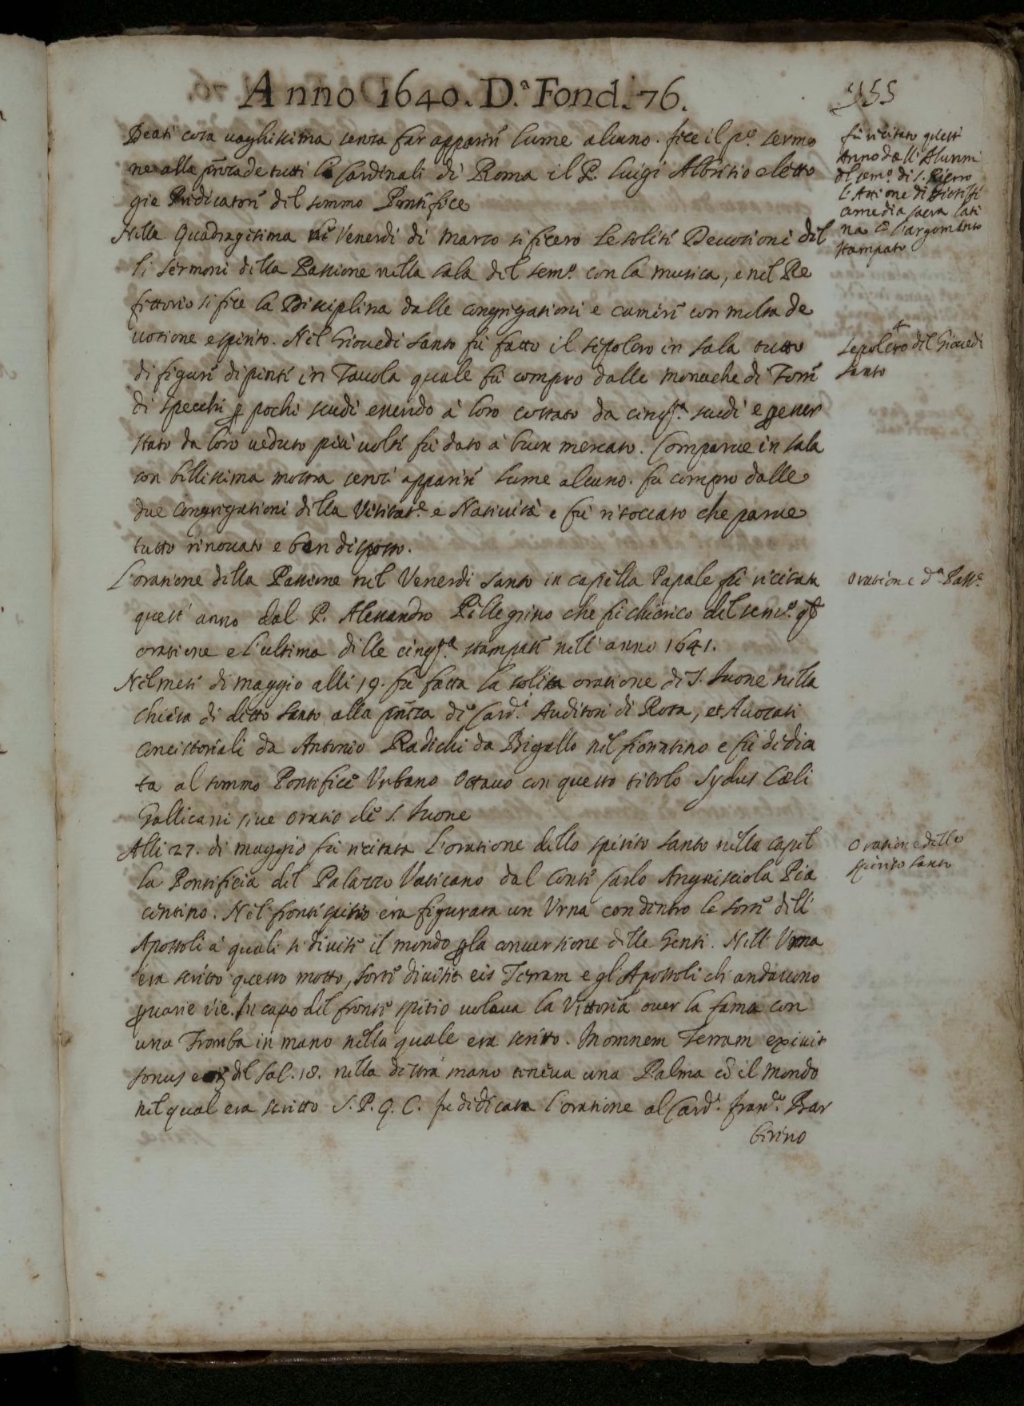 Anno 1640. D.ª Fond. 76.
355
Beati cosa vaghissima senza far apparire lume alcuno. fece il p.º sermo
ne alla pnza de tutti li Cardinali di Roma il P. Luigi Albritio eletto
gia Predicatore del sommo Pontefice
Nella Quadragesima ne Venerdi di Marzo si ficero le solite Devotioni del
li sermoni della Passione nella sala del sem.º con la musica, e nel Re
fettorio si fece la Disciplina dalle congregationi e camere con molta de
votione e spirito. Nel Giovedi santo fu fatto il sepolcro in sala tutto
di figure dipinte in Tavola quale fu compro dalle monache di Torre
di specchi p pochi scudi essendo à loro costato da cinq.ta scudi e p esser
stato da loro veduto più volte fu dato a buon mercato. Comparve in sala
con bellissima mostra senza apparire lume alcuno. fu compro dalle
due Congregationi della Visitat.e e Natività e fu ritoccato che parve
tutto rinovato e ben disposto.
L'oratione della Passione nel Venerdi santo in cappella Papale fu recitata
quest' anno dal P. Alessandro Pellegrino che fu chierico del sem.º qt
oratione e l'ultima delle cinq.ta stampate nell' anno 1641.
Nel mese di maggio alli 19. fu fatta la solita oratione di S. Ivone nella
chiesa di detto santo alla pnza di Card.i Auditori di Rota, et Avocati
Concistoriali da Antonio Radichi da Bigallo nel fiorentino e fu dedica
ta al sommo Pontefice Urbano Ottavo con questo titolo Sydus Cœli
Gallicani sive oratio de S. Ivone
Alli 27. di maggio fu recitata l'oratione dello spirito santo nella capel
la Pontificia del Palazzo Vaticano dal Conte Carlo Anguisciola Pia
centino. Nel frontispitio era figurata un Urna con dentro le sorti dell'
Apostoli a quali si divise il mondo p la conversione delle Genti. Nell' Urna
era scritto questo motto, sorte divisit eis Terram e gl'Apostoli ch andavano
p varie vie. In capo del frontispitio volava la Vittoria over la fama con
una Tromba in mano nella quale era scritto. In omnem Terram exivit
sonus eor. del Sal. 18. nella destra mano teneva una Palma cō il mondo
nel qual era scritto S. P. Q. C. fu dedicata l'oratione al Card.l fran.co Bar
berino
fu recitato quest
Anno dall'Alunni
del sem.º di S. Pietro
l'Attione di
comedia sacra lati
na cō l'argomento
stampato
sepolcro del Giovedi
santo
oratione d.ª Pass.e
Oratione dello
spirito santo